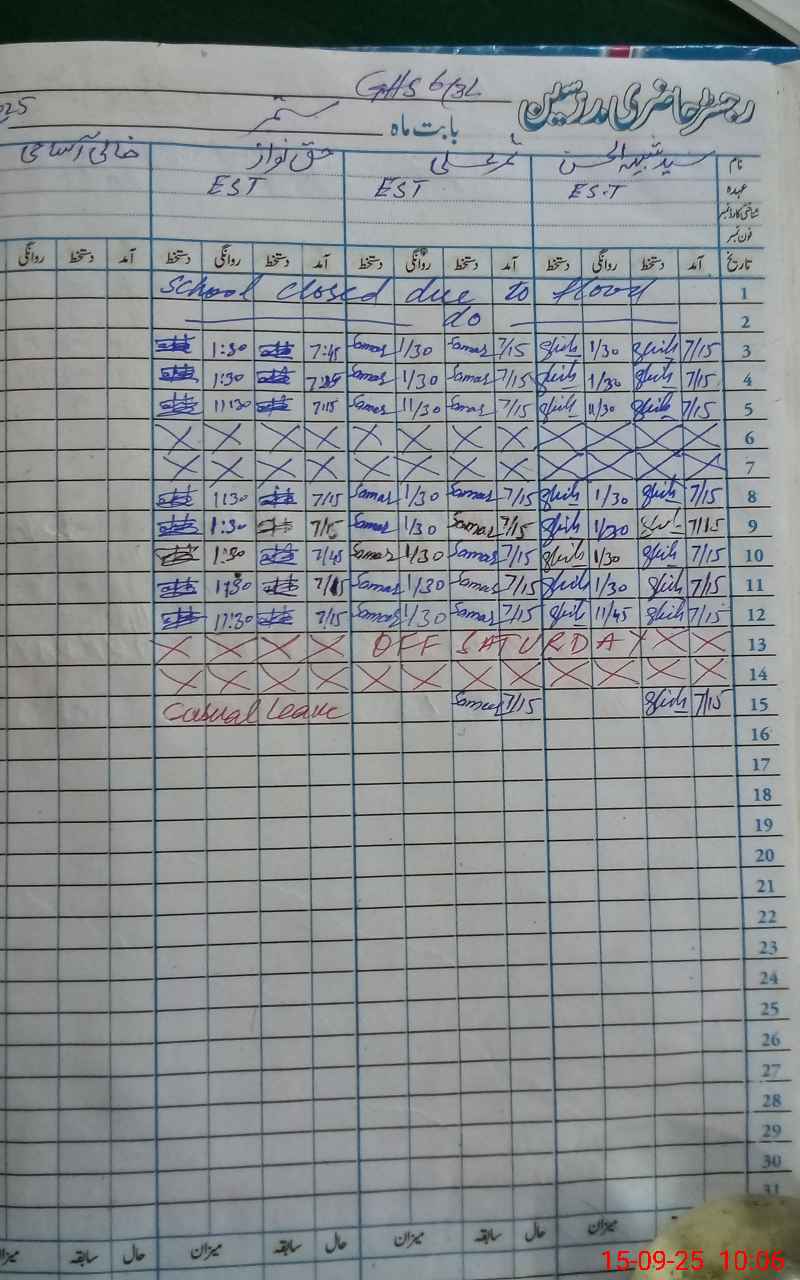 GHS 6/3L
رجسٹر حاضری مدرسین
بابت ماہ ستمبر
نام سید شبیہ الحسن ثمر علی حق نواز خالی آسامی
عہدہ EST EST EST
شناختی کارڈ نمبر
فون نمبر
تاریخ آمد دستخط روانگی دستخط آمد دستخط روانگی دستخط آمد دستخط روانگی دستخط آمد دستخط روانگی
1 School closed due to flood
2 do
3 7/15 1/30 7/15 Samar 1/30 Samar 7:45 1:30
4 7/15 1/30 7/15 Samar 1/30 Samar 1:30
5 7/15 11/30 7/15 Samar 11/30 Samar 7/15 11:30
6 X X X X X X X X X X X X
7 X X X X X X X X X X X X
8 7/15 1/30 7/15 Samar 1/30 Samar 7/15 1:30
9 7/15 1/30 7/15 Samar 1/30 Samar 7/15 1:30
10 7/15 1/30 7/15 Samar 1/30 Samar 1:30
11 7/15 1/30 7/15 Samar 1/30 Samar 7/15
12 7/15 11/45 7/15 Samar 1/30 Samar 7/15 11:30
13 X X X X OFF SATURDAY X X
14 X X X X X X X X X X X X
15 7/15 7/15 Samar Casual Leave
16
17
18
19
20
21
22
23
24
25
26
27
28
29
30
31
میزان حال سابقہ میزان حال سابقہ میزان حال سابقہ میزان
15-09-25 10:06